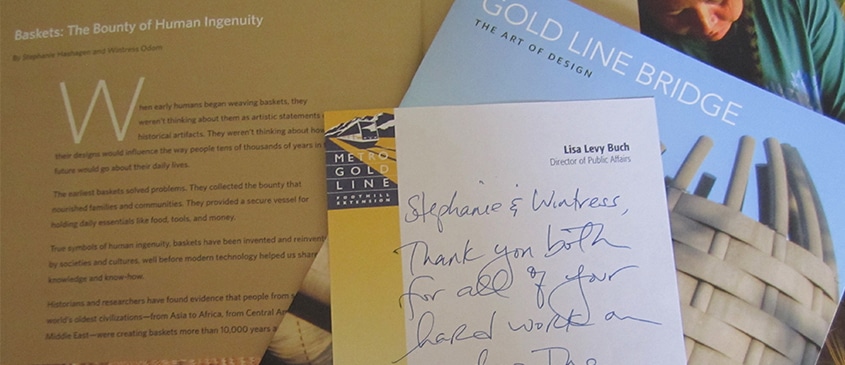 Baskets: The Bounty of Human Ingenuity
By Stephanie Hashagen and Wintress Odom
When early humans began weaving baskets, they
weren't thinking about them as artistic statements
historical artifacts. They weren't thinking about how
their designs would influence the way people tens of thousands of years in
future would go about their daily lives.
The earliest baskets solved problems. They collected the bounty that
nourished families and communities. They provided a secure vessel for
holding daily essentials like food, tools, and money.
True symbols of human ingenuity, baskets have been invented and reinvent
by societies and cultures, well before modern technology helped us share
knowledge and know-how.
Historians and researchers have found evidence that people from
world's oldest civilizations—from Asia to Africa, from Central
Middle East—were creating baskets more than 10,000 years a
GOLD LINE BRIDGE
THE ART OF DESIGN
METRO
GOLD
LINE
FOOTHILL
EXTENSION
Lisa Levy Buch
Director of Public Affairs
Stephanie & Wintress,
Thank you both
for all of your
hard work on
The